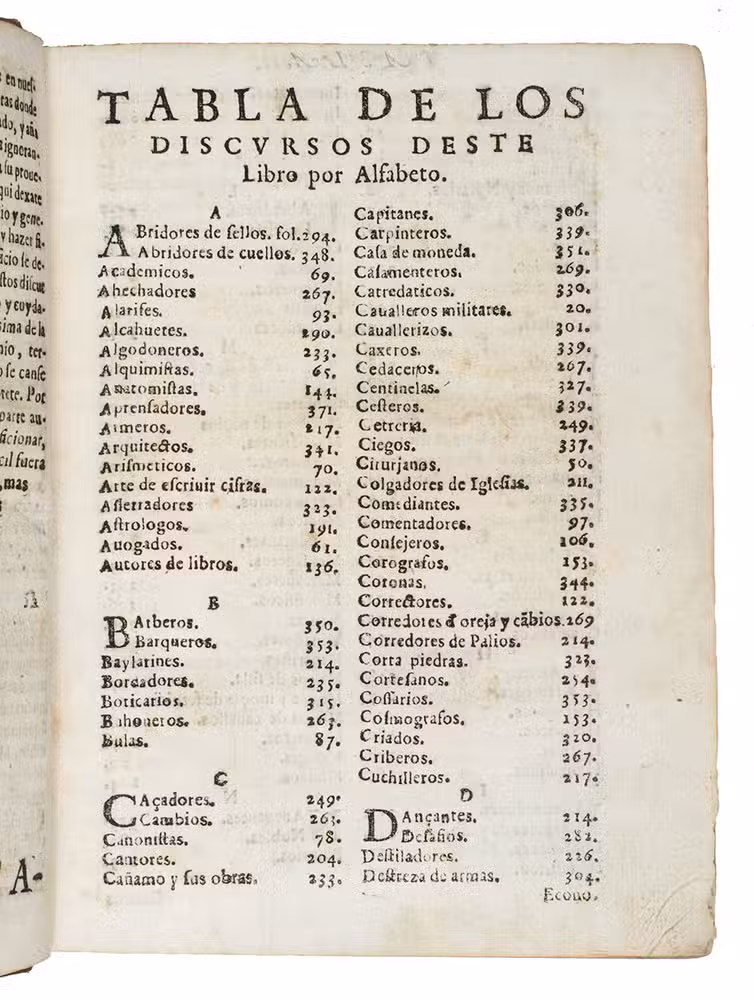 en nueſ-
tas donde
do, y aña
ignoran-
ſu proue-
qui dexare
io y gene-
y hazer ſi-
icio ſe de-
ſtos diſcur
y coyda-
ſima de la
nio, ter-
o ſe canſe
rete. Por
parte au-
ficionar,
cil fuera
,mas
A-
TABLA DE LOS
DISCVRSOS DESTE
Libro por Alfabeto.
A
ABridores de ſellos. fol.294.
Abridores de cuellos. 348.
Academicos. 69.
Ahechadores 267.
Alarifes. 93.
Alcahuetes. 290.
Algodoneros. 233.
Alquimiſtas. 65.
Anatomiſtas. 144.
Aprenſadores. 371.
Armeros. 217.
Arquitectos. 341.
Ariſmeticos. 70.
Arte de eſcriuir cifras. 122.
Aſſerradores 323.
Aſtrologos. 191.
Auogados. 61.
Autores de libros. 136.
B
BArberos. 350.
Barqueros. 353.
Baylarines. 214.
Bordadores. 235.
Boticarios. 315.
Buhoneros. 263.
Bulas. 87.
C
CAçadores. 249.
Cambios. 263.
Canoniſtas. 78.
Cantores. 204.
Cañamo y ſus obras. 233.
Capitanes. 306.
Carpinteros. 339.
Caſa de moneda. 351.
Caſamenteros. 269.
Catredaticos. 330.
Caualleros militares. 20.
Cauallerizos. 301.
Caxeros. 339.
Cedaceros. 267.
Centinelas. 327.
Ceſteros. 339.
Cetreria. 249.
Ciegos. 337.
Cirurjanos. 50.
Colgadores de Igleſias. 211.
Comediantes. 335.
Comentadores. 97.
Conſejeros. 106.
Corografos. 153.
Coronas. 344.
Correctores. 122.
Corredores đ oreja y cãbios.269
Corredores de Palios. 214.
Corta piedras. 323.
Corteſanos. 254.
Coſſarios. 353.
Coſmografos. 153.
Criados. 320.
Criberos. 267.
Cuchilleros. 217.
D
DAnçantes. 214.
Deſafios. 282.
Deſtiladores. 226.
Deſtreza de armas. 304.
Econo.